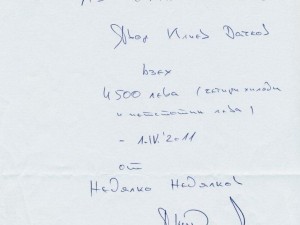 Явор Илиев Дачков
взех
4 500 лева (четири хиляди
и петстотин лева)
- 1.IV.2011
от
Недялко Недялков